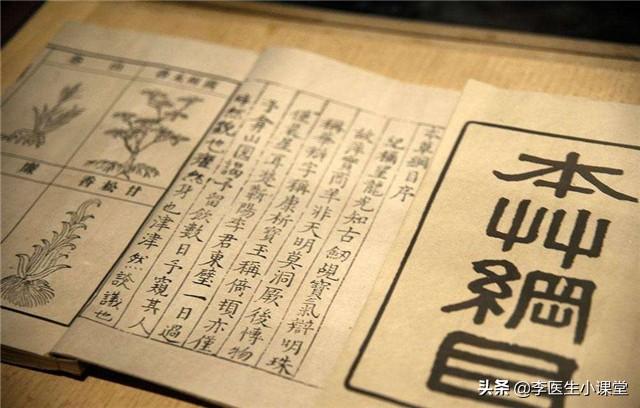 本艸綱目
本草綱目序
記稱望龍光知古劒覘寶氣辯明珠
故萍實商羊非天明莫洞厥後博物
稱華辯字稱康析寶玉稱倚頓亦僅
僅晨星耳楚蘄陽李君東璧一日過
予弇山園謁予留飲數日予窺其人
睟然貌也癯然身也津津然談議也
甘松香
头条 @李医生小课堂